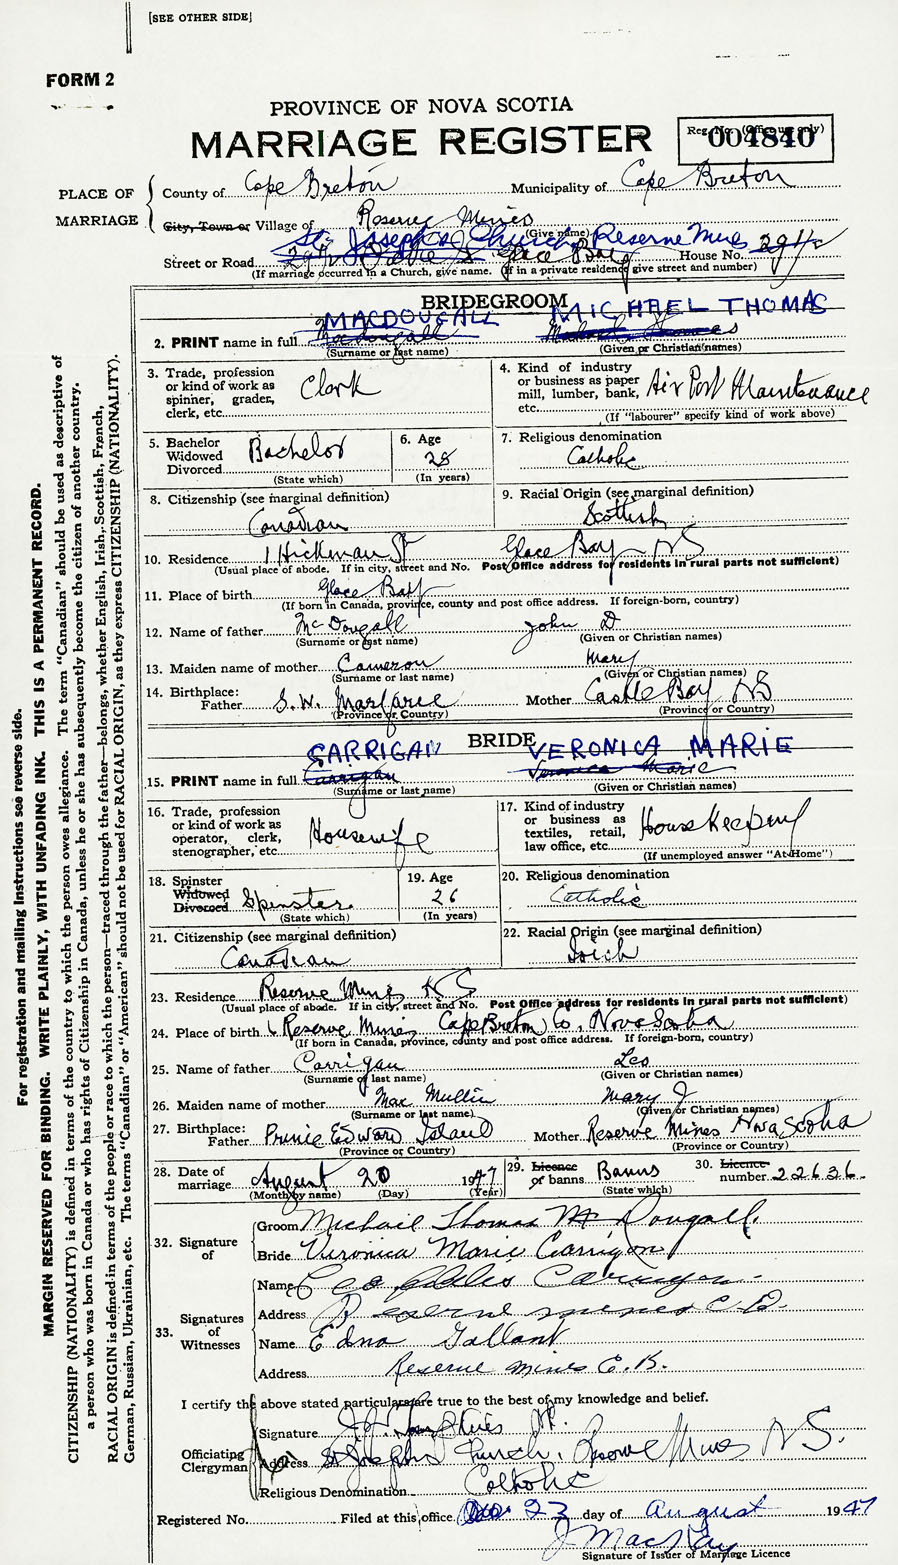 [SEE OTHER SIDE]
FORM 2
PROVINCE OF NOVA SCOTIA
MARRIAGE REGISTER
Reg. No. (Office use only)
004840
PLACE OF MARRIAGE
County of Cape Breton Municipality of Cape Breton
City, Town or Village of Reserve Mines
(Give name)
St. Joseph's Church, Reserve Mines
Street or Road Glace Bay House No.
(If marriage occurred in a Church, give name. (If in a private residence give street and number)
BRIDEGROOM
MACDOUGALL MICHAEL THOMAS
2. PRINT name in full Macdougall Thomas
(Surname or last name) (Given or Christian names)
3. Trade, profession or kind of work as spinner, grader, clerk, etc. Clerk
4. Kind of industry or business as paper mill, lumber, bank, etc. Air Port Maintenance
(If "labourer" specify kind of work above)
5. Bachelor Widowed Divorced Bachelor
(State which)
6. Age 28
(In years)
7. Religious denomination
Catholic
8. Citizenship (see marginal definition)
Canadian
9. Racial Origin (see marginal definition)
Scottish
10. Residence 1 Hickman St Glace Bay NS
(Usual place of abode. If in city, street and No. Post Office address for residents in rural parts not sufficient)
11. Place of birth Glace Bay
(If born in Canada, province, county and post office address. If foreign-born, country)
12. Name of father McDougall John D
(Surname or last name) (Given or Christian names)
13. Maiden name of mother Cameron Mary
(Surname or last name) (Given or Christian names)
14. Birthplace: Father S.W. Margaree Mother Castle Bay NS
(Province or Country) (Province or Country)
BRIDE
CARRIGAN VERONICA MARIE
15. PRINT name in full Carrigan Veronica Marie
(Surname or last name) (Given or Christian names)
16. Trade, profession or kind of work as operator, clerk, stenographer, etc. Housewife
17. Kind of industry or business as textiles, retail, law office, etc. Housekeeping
(If unemployed answer "At Home")
18. Spinster Widowed Divorced Spinster
(State which)
19. Age 26
(In years)
20. Religious denomination
Catholic
21. Citizenship (see marginal definition)
Canadian
22. Racial Origin (see marginal definition)
Irish
23. Residence Reserve Mines NS
(Usual place of abode. If in city, street and No. Post Office address for residents in rural parts not sufficient)
24. Place of birth Reserve Mines Cape Breton Co. Nova Scotia
(If born in Canada, province, county and post office address. If foreign-born, country)
25. Name of father Carrigan Leo
(Surname or last name) (Given or Christian names)
26. Maiden name of mother Mac Mullin Mary J
(Surname or last name) (Given or Christian names)
27. Birthplace: Father Prince Edward Island Mother Reserve Mines Nova Scotia
(Province or Country) (Province or Country)
28. Date of marriage August 20 1947
(Month by name) (Day) (Year)
29. Licence of banns Banns
(State which)
30. Licence number 22636
32. Signature of
Groom Michail Thomas McDougall
Bride Veronica Marie Carrigan
33. Signatures of Witnesses
Name Leo Carrigan
Address Reserve mines C.B.
Name Edna Gallant
Address Reserve Mines C.B.
I certify the above stated particulars are true to the best of my knowledge and belief.
Officiating Clergyman
Signature
Address St Josephs Church, Reserve Mines NS.
Religious Denomination Catholic
Registered No. Filed at this office 23 day of August 1947
J. MacKay
Signature of Issuer of Marriage Licence
For registration and mailing instructions see reverse side.
MARGIN RESERVED FOR BINDING. WRITE PLAINLY, WITH UNFADING INK. THIS IS A PERMANENT RECORD.
CITIZENSHIP (NATIONALITY) is defined in terms of the country to which the person owes allegiance. The term "Canadian" should be used as descriptive of
a person who was born in Canada or who has rights of Citizenship in Canada, unless he or she has subsequently become the citizen of another country.
RACIAL ORIGIN is defined in terms of the people or race to which the person—traced through the father—belongs, whether English, Irish, Scottish, French,
German, Russian, Ukrainian, etc. The terms "Canadian" or "American" should not be used for RACIAL ORIGIN, as they express CITIZENSHIP (NATIONALITY).